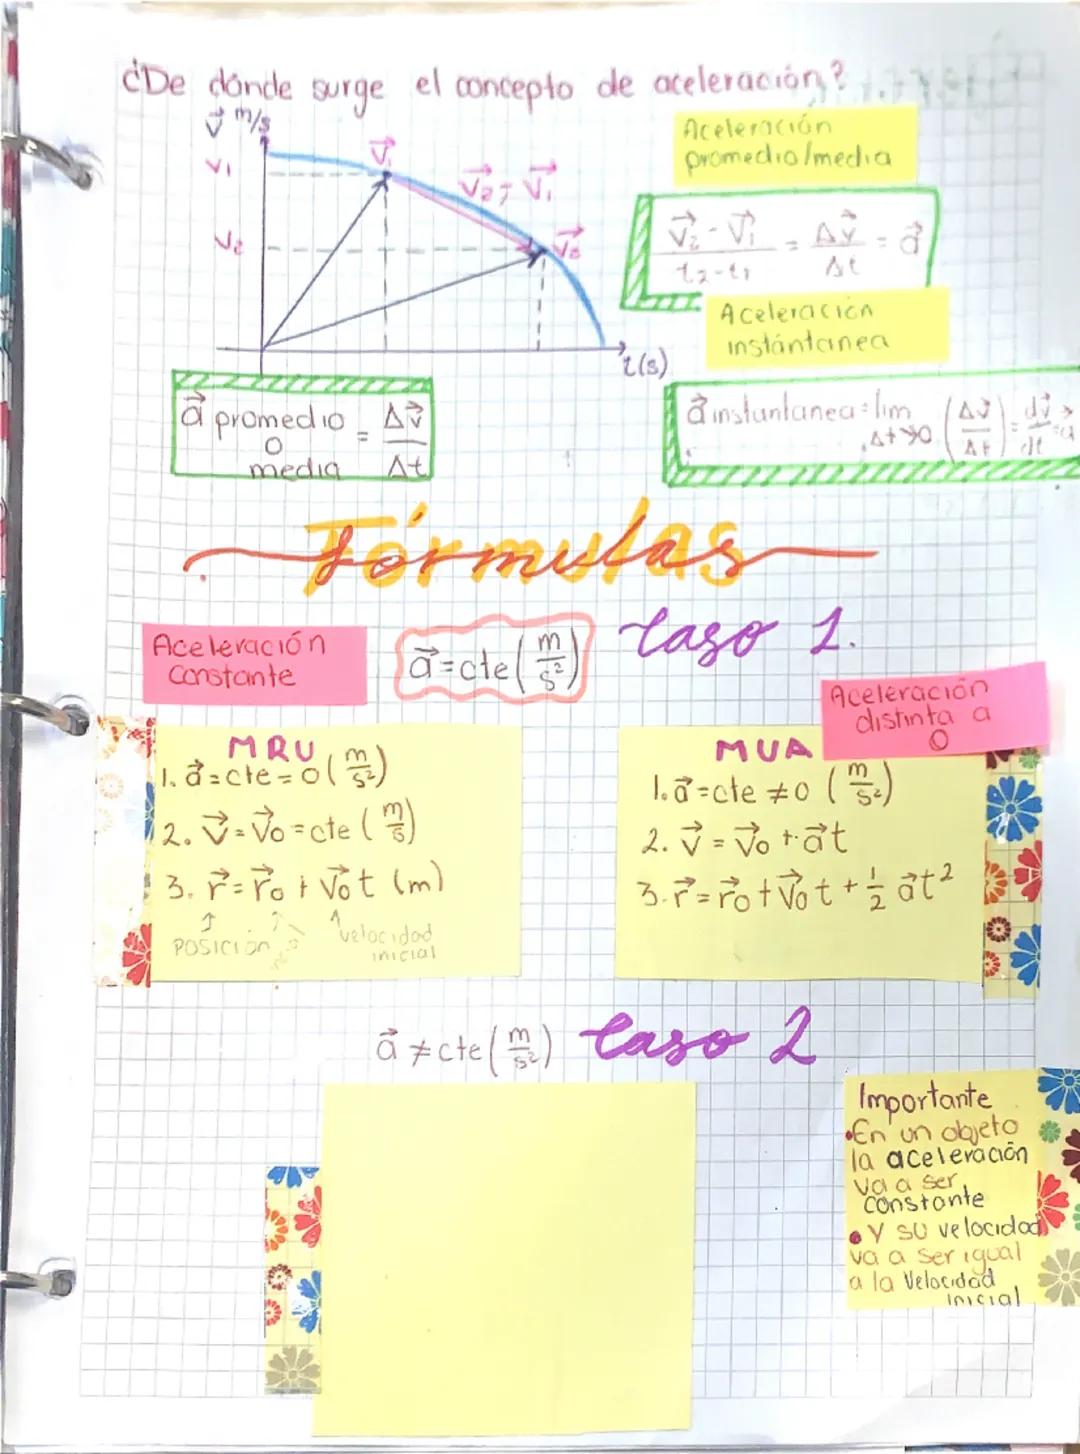 ¿De dónde surge el concepto de aceleración?
v⃗ m/s
v₁
v⃗₁
v⃗₂ - v⃗₁
v₂
v⃗₂
t(s)
Aceleración
promedio/media
(v⃗₂ - v⃗₁)/(t₂-t₁) = Δv⃗/Δt = a⃗
Aceleración
instántanea
a⃗ promedio o media = Δv⃗/Δt
a⃗ instantanea = lim Δt→0 (Δv⃗/Δt) = dv⃗/dt = a⃗
Fórmulas
Aceleración
Constante
a⃗=cte(m/s²)
Caso 1.
Aceleración
distinta a
0
MRU
1. a⃗=cte=0(m/s²)
2. v⃗=v⃗₀=cte(m/s)
3. r⃗=r⃗₀+v⃗₀t (m)
Posición
velocidad
inicial
MUA
1. a⃗=cte≠0 (m/s²)
2. v⃗=v⃗₀+a⃗t
3. r⃗=r⃗₀+v⃗₀t+½a⃗t²
a⃗≠cte(m/s²)
Caso 2
Importante
•En un objeto
la aceleración
va a ser
constante
•Y su velocidad
va a ser igual
a la velocidad
inicial